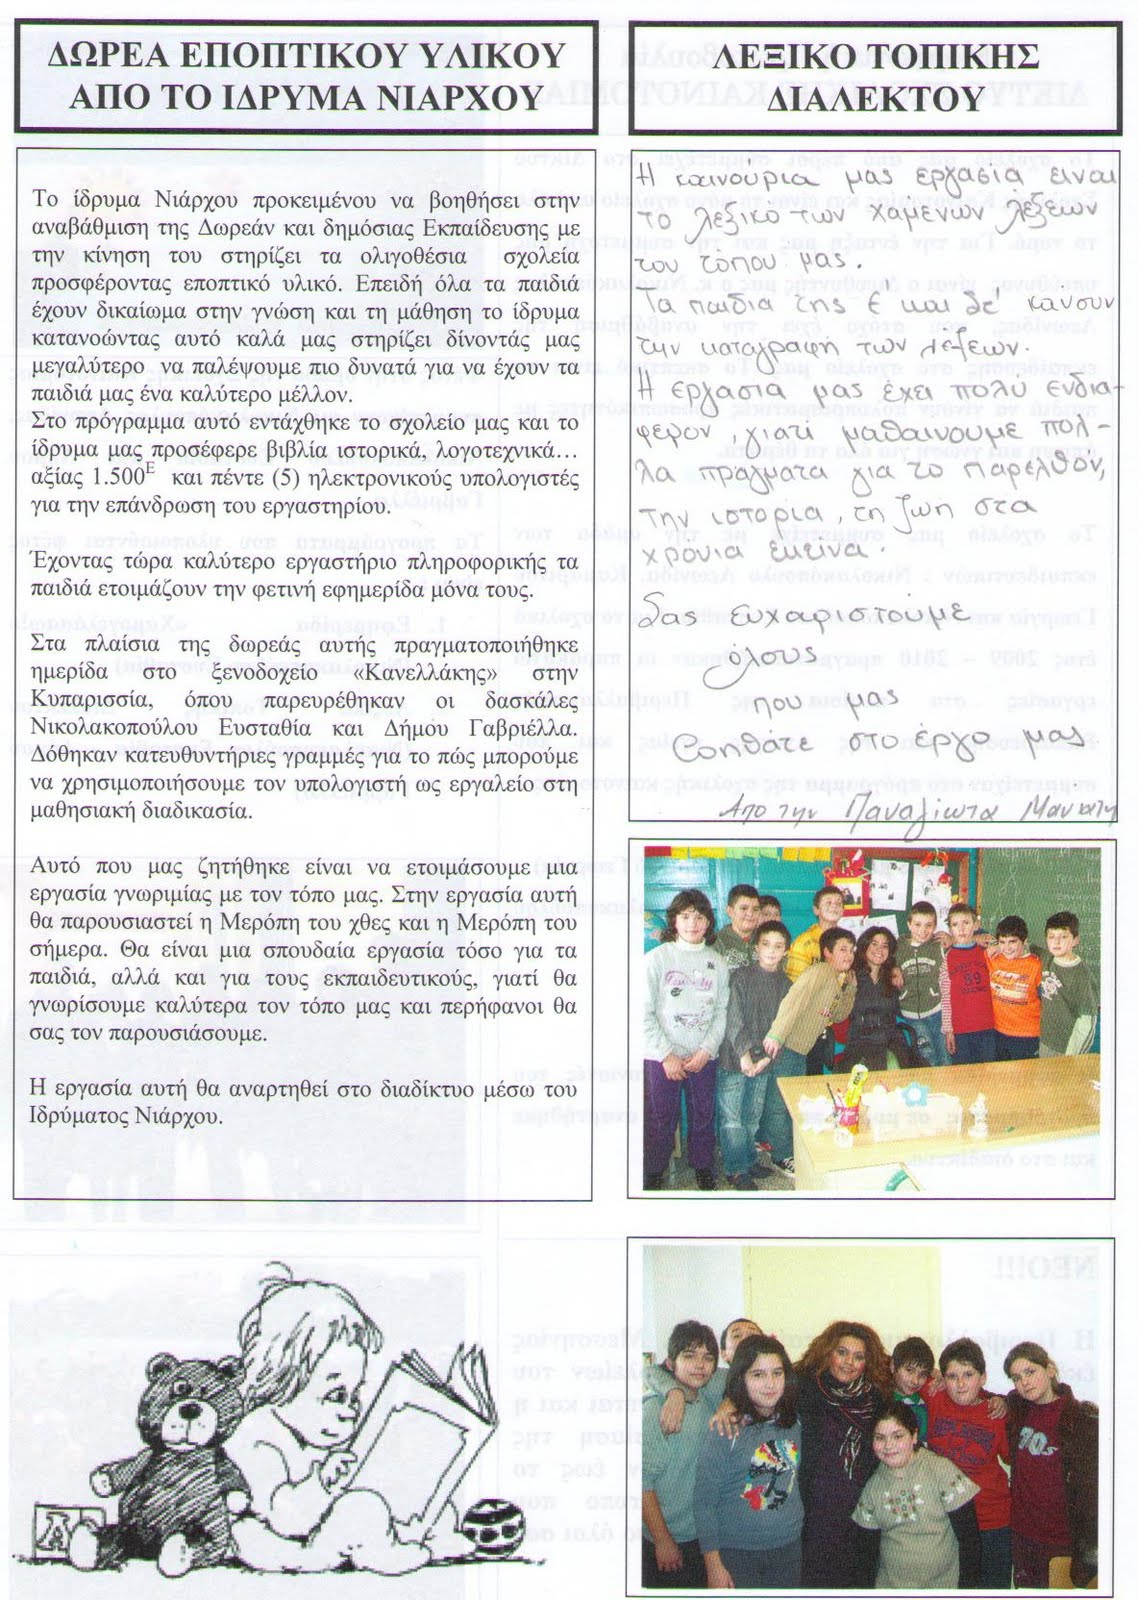 ΔΩΡΕΑ ΕΠΟΠΤΙΚΟΥ ΥΛΙΚΟΥ
ΑΠΟ ΤΟ ΙΔΡΥΜΑ ΝΙΑΡΧΟΥ
Το ίδρυμα Νιάρχου προκειμένου να βοηθήσει στην
αναβάθμιση της Δωρεάν και δημόσιας Εκπαίδευσης με
την κίνηση του στηρίζει τα ολιγοθέσια σχολεία
προσφέροντας εποπτικό υλικό. Επειδή όλα τα παιδιά
έχουν δικαίωμα στην γνώση και τη μάθηση το ίδρυμα
κατανοώντας αυτό καλά μας στηρίζει δίνοντάς μας
μεγαλύτερο να παλέψουμε πιο δυνατά για να έχουν τα
παιδιά μας ένα καλύτερο μέλλον.
Στο πρόγραμμα αυτό εντάχθηκε το σχολείο μας και το
ίδρυμα μας προσέφερε βιβλία ιστορικά, λογοτεχνικά…
αξίας 1.500Ε και πέντε (5) ηλεκτρονικούς υπολογιστές
για την επάνδρωση του εργαστηρίου.
Έχοντας τώρα καλύτερο εργαστήριο πληροφορικής τα
παιδιά ετοιμάζουν την φετινή εφημερίδα μόνα τους.
Στα πλαίσια της δωρεάς αυτής πραγματοποιήθηκε
ημερίδα στο ξενοδοχείο «Κανελλάκης» στην
Κυπαρισσία, όπου παρευρέθηκαν οι δασκάλες
Νικολακοπούλου Ευσταθία και Δήμου Γαβριέλλα.
Δόθηκαν κατευθυντήριες γραμμές για το πώς μπορούμε
να χρησιμοποιήσουμε τον υπολογιστή ως εργαλείο στη
μαθησιακή διαδικασία.
Αυτό που μας ζητήθηκε είναι να ετοιμάσουμε μια
εργασία γνωριμίας με τον τόπο μας. Στην εργασία αυτή
θα παρουσιαστεί η Μερόπη του χθες και η Μερόπη του
σήμερα. Θα είναι μια σπουδαία εργασία τόσο για τα
παιδιά, αλλά και για τους εκπαιδευτικούς, γιατί θα
γνωρίσουμε καλύτερα τον τόπο μας και περήφανοι θα
σας τον παρουσιάσουμε.
Η εργασία αυτή θα αναρτηθεί στο διαδίκτυο μέσω του
Ιδρύματος Νιάρχου.
ΛΕΞΙΚΟ ΤΟΠΙΚΗΣ
ΔΙΑΛΕΚΤΟΥ
Η καινούρια μας εργασία ειναι
το λεξικο των χαμενων λέξεων
του τόπου μας.
Τα παιδια της έ και δέ κανουν
την καταγραφή των λέξεων.
Η εργασια μας έχει πολυ ενδια-
φερον, γιατι μαθαινουμε πολ-
λα πραγματα για το παρελθον,
την ιστορια, τη ζωη στα
χρονια εκεινα.
Σας ευχαριστούμε
όλους
που μας
βοηθάτε στο έργο μας.
Απο την Παναγιωτα
70's